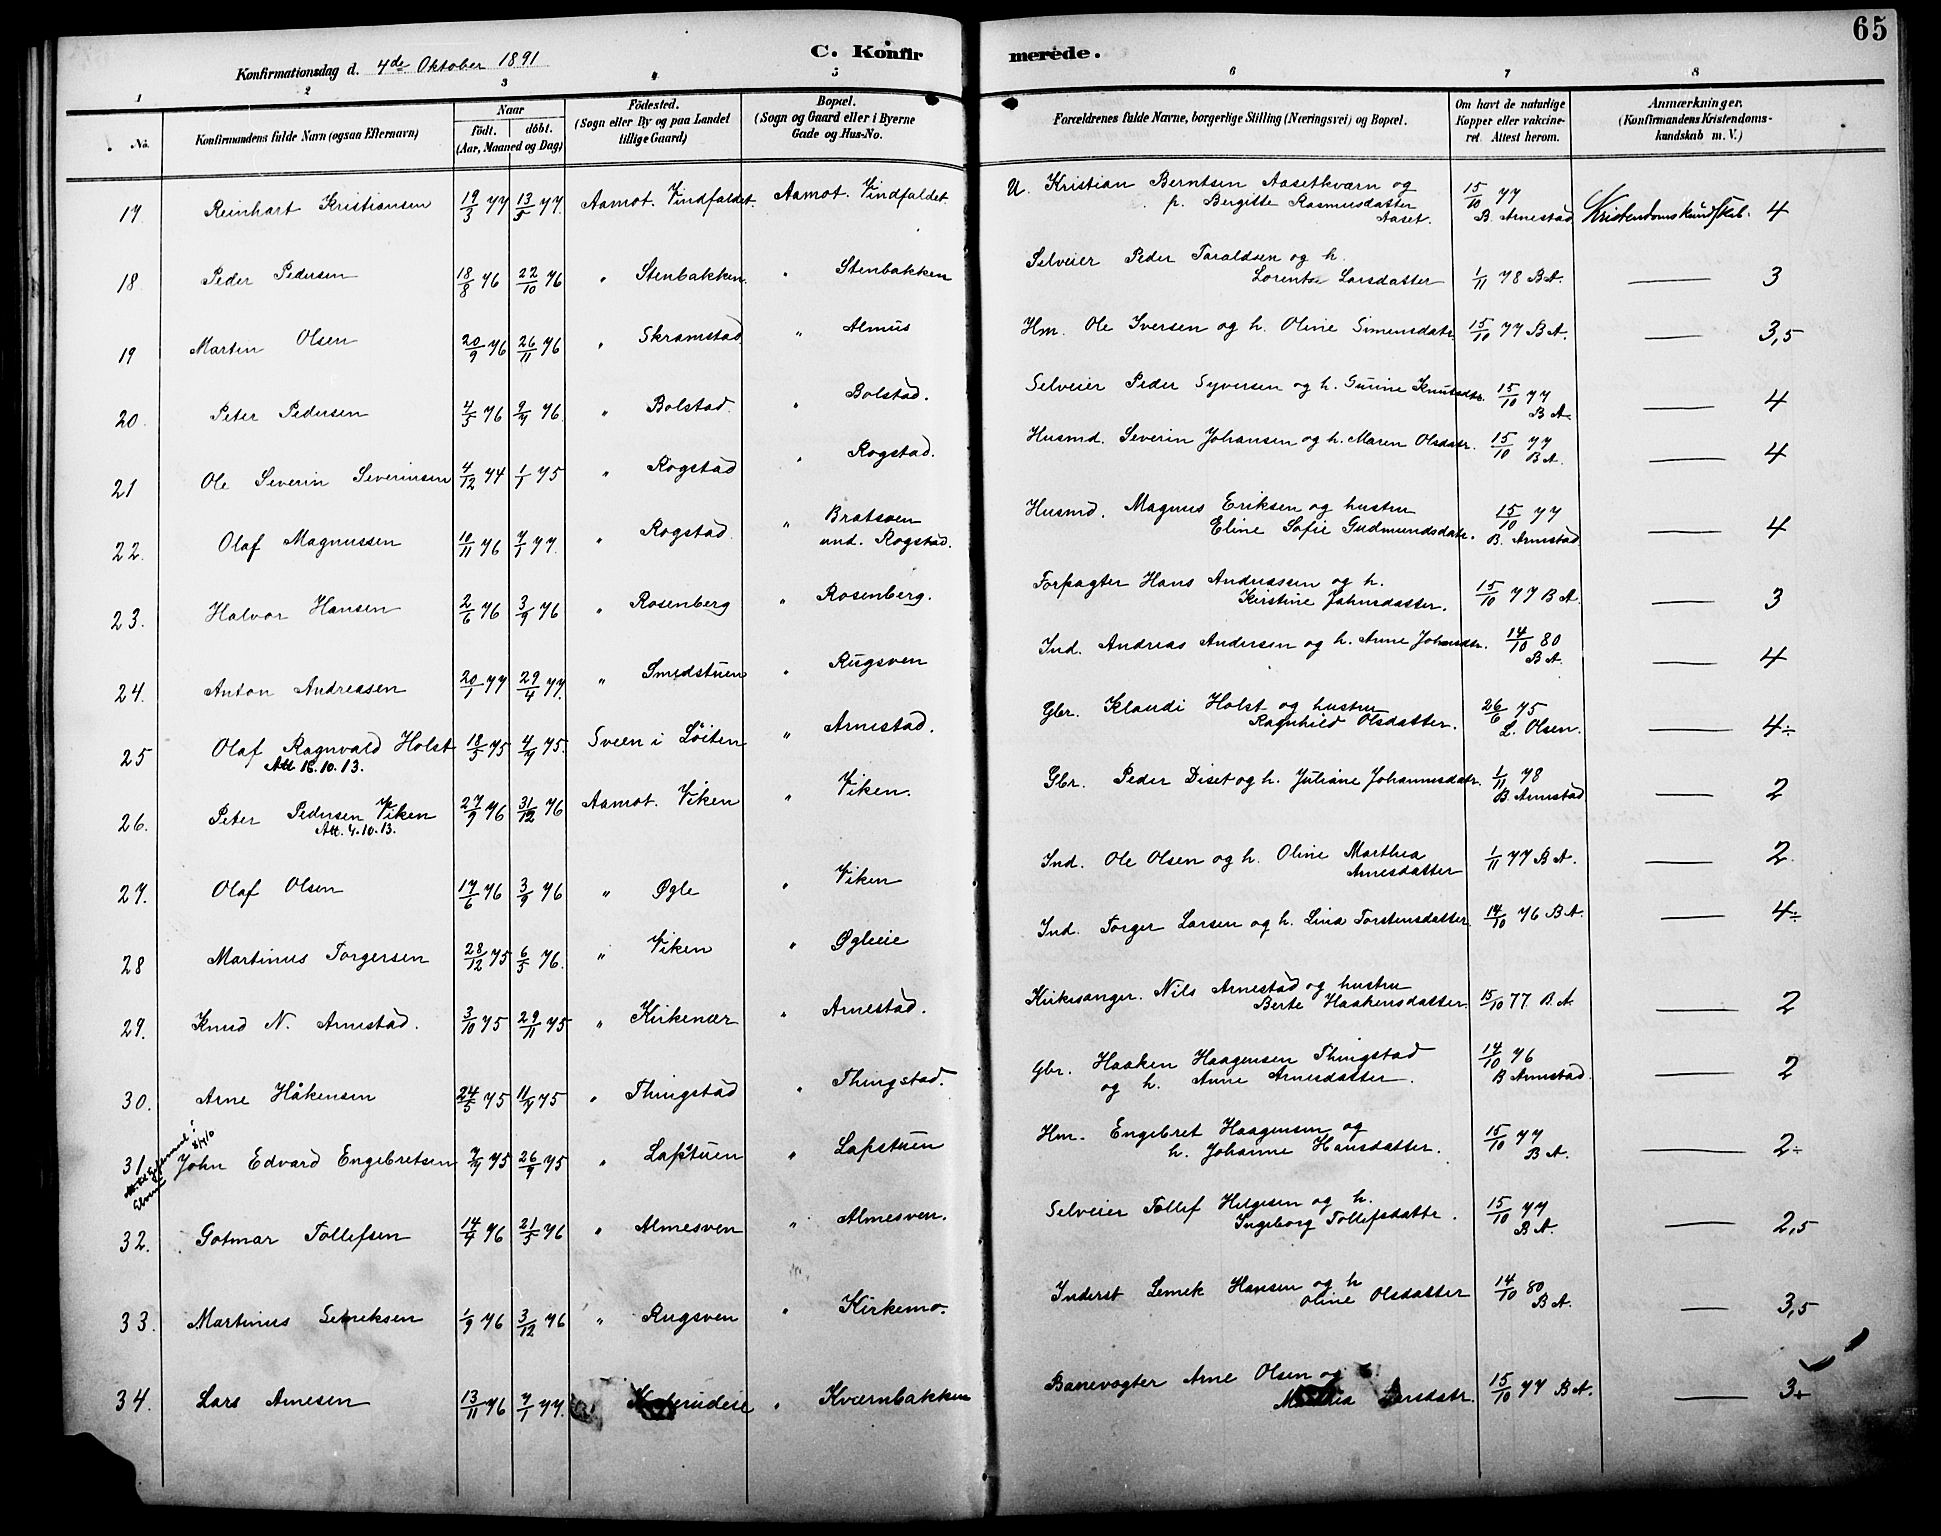 65
C. Konfirmerede.
Konfirmationsdag d. 4de Oktober 1891
1 2 3 4 5 6 7 8
No. Konfirmandens fulde Navn (ogsaa Efternavn) Naar födt. döbt. (Aar, Maaned og Dag) Födested. (Sogn eller By og paa Landet tillige Gaard) Bopæl. (Sogn og Gaard eller i Byerne Gade og Hus-No. Forældrenes fulde Navne, borgerlige Stilling (Næringsvei) og Bopæl. Om havt de naturlige Kopper eller vakcineret. Attest herom. Anmærkninger. (Konfirmandens Kristendomskundskab m. V.)
17. Reinhart Kristiansen 19/3 77 13/5 77. Aamot. Vindfaldet. Aamot. Vindfaldet U. Kristian Berntsen Aasetkværn og p. Bergitte Rasmusdatter Aaset. 15/10 77 B. Arnestad Kristendomskundskab. 4
18. Peder Pedersen 18/8 76 22/10 76 " Stenbakken. " Stenbakken Selveier Peder Taraldsen og h. Lorentse Larsdatter 1/11 78 B A. — 3
19 Martin Olsen 20/9 76 26/11 76 " Skramstad " Almus Hm. Ole Iversen og h. Oline Simensdatr 15/10 77 B A. — 3,5
20. Peter Pedersen 4/5 76 9/7 76. " Bolstad. " Bolstad. Selveier Peder Syversen og h. Gunine Knutsdtr. 15/10 77 B A. — 4
21 Ole Severin Severinsen 4/12 74 1/1 75 " Rogstad " Rogstad. Husmd. Severin Johansen og h. Maren Olsdatr. 15/10 77 B A. — 4
22. Olaf Magnussen 10/11 76 7/1 77. " Rogstad. " Bratsven und. Rogstad. Husmd. Magnus Eriksen og hustru Eline Sofie Gudmundsdatr. 15/10 77 B. Arnestad — 4
23. Halvor Hansen 2/6 76 3/9 76 " Rosenberg " Rosenberg. Forpagter Hans Andreassen og h. Kirstine Johnsdatter. 15/10 77 B A. — 3
24. Anton Andreasen 20/1 77 29/4 77. " Smedstuen " Rugsven Ind. Andreas Andersen og h. Anne Johnsdtr. 14/10 80 B A. — 4
25 Olaf Ragnvald Holst 18/5 75 4/7 75. Sveen i Löiten " Arnestad. Gbr. Klaudi Holst og hustru Ragnhild Olsdatter. 26/6 75 L. Olsen. — 4÷
Att 16.10.13.
26. Peter Pedersen Viken 27/9 76 31/12 76 Aamot. Viken " Viken. Gbr. Peder Diset og h. Juliane Johannesdatr. 1/11 78 B. Arnestad — 2
Att. 4.10.13.
27. Olaf Olsen 17/6 76 3/9 76 " Øgle " Viken Ind. Ole Olsen og h. Oline Marthea Arnesdatter 1/11 77 B A. — 2.
28 Martinus Torgersen 28/12 75 6/5 76. " Viken " Øgleeie Ind. Torger Larsen og h. Lina Torstensdatter 14/10 76 B A. — 4÷
29. Knud N. Arnestad. 3/10 75 29/11 75 " Kirkenær " Arnestad. Kirkesanger. Nils Arnestad og hustru Berte Haakensdatter 15/10 77 B. A — 2
30. Arne Håkensen 24/5 75 11/7 75 " Thingstad " Thingstad. Gbr. Haaken Haagensen Thingstad og h. Anne Arnesdatter. 14/10 76 B Arnestad. — 2
31. John Edvard Engebretsen 7/7 75 26/9 75 " Lapstuen " Lapstuen Hm. Engebret Haagensen og h. Johanne Hansdatter. 15/10 77 B A. — 2÷
32. Gotmar Tollefsen 14/4 76 21/5 76 " Almesven " Almesven. Selveier Tollef Helgesen og h. Ingeborg Tollefsdattr. 15/10 77 B A. — 2,5
33. Martinus Lemeksen 1/9 76 3/12 76 " Rugsven " Kirkemo. Inderst Lemek Hansen og h Oline Olsdatter 14/10 80 B A. — 3,5
34. Lars Arnesen 13/11 76 7/1 77. " Kværnbakken Banevogter Arne Olsen og Larsdatr. 15/10 77 B A. — 3+